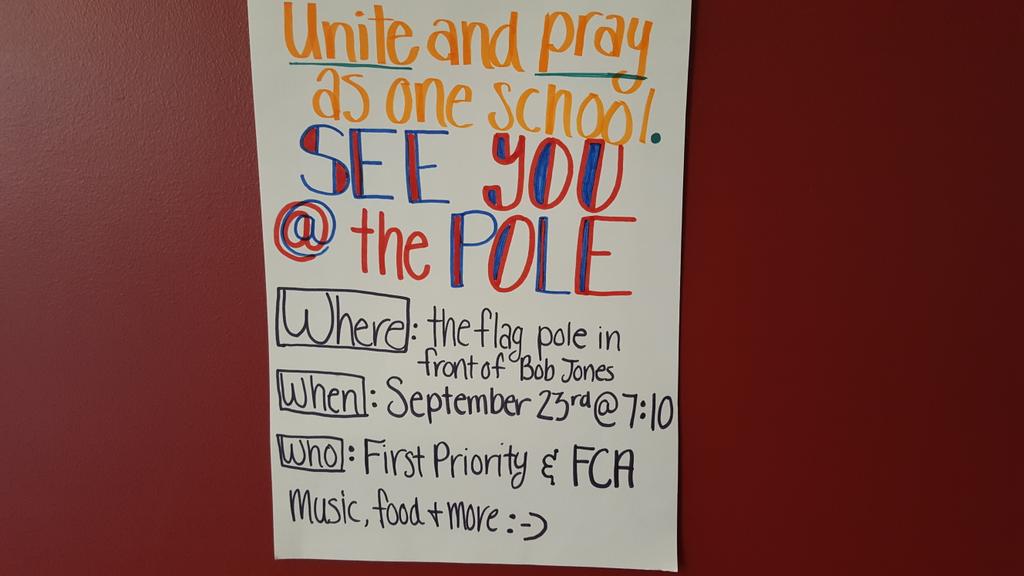 Unite and pray
as one school.
SEE YOU
@ the POLE
Where: the flag pole in
front of Bob Jones
When: September 23rd @ 7:10
Who: First Priority & FCA
Music, food + more :-)